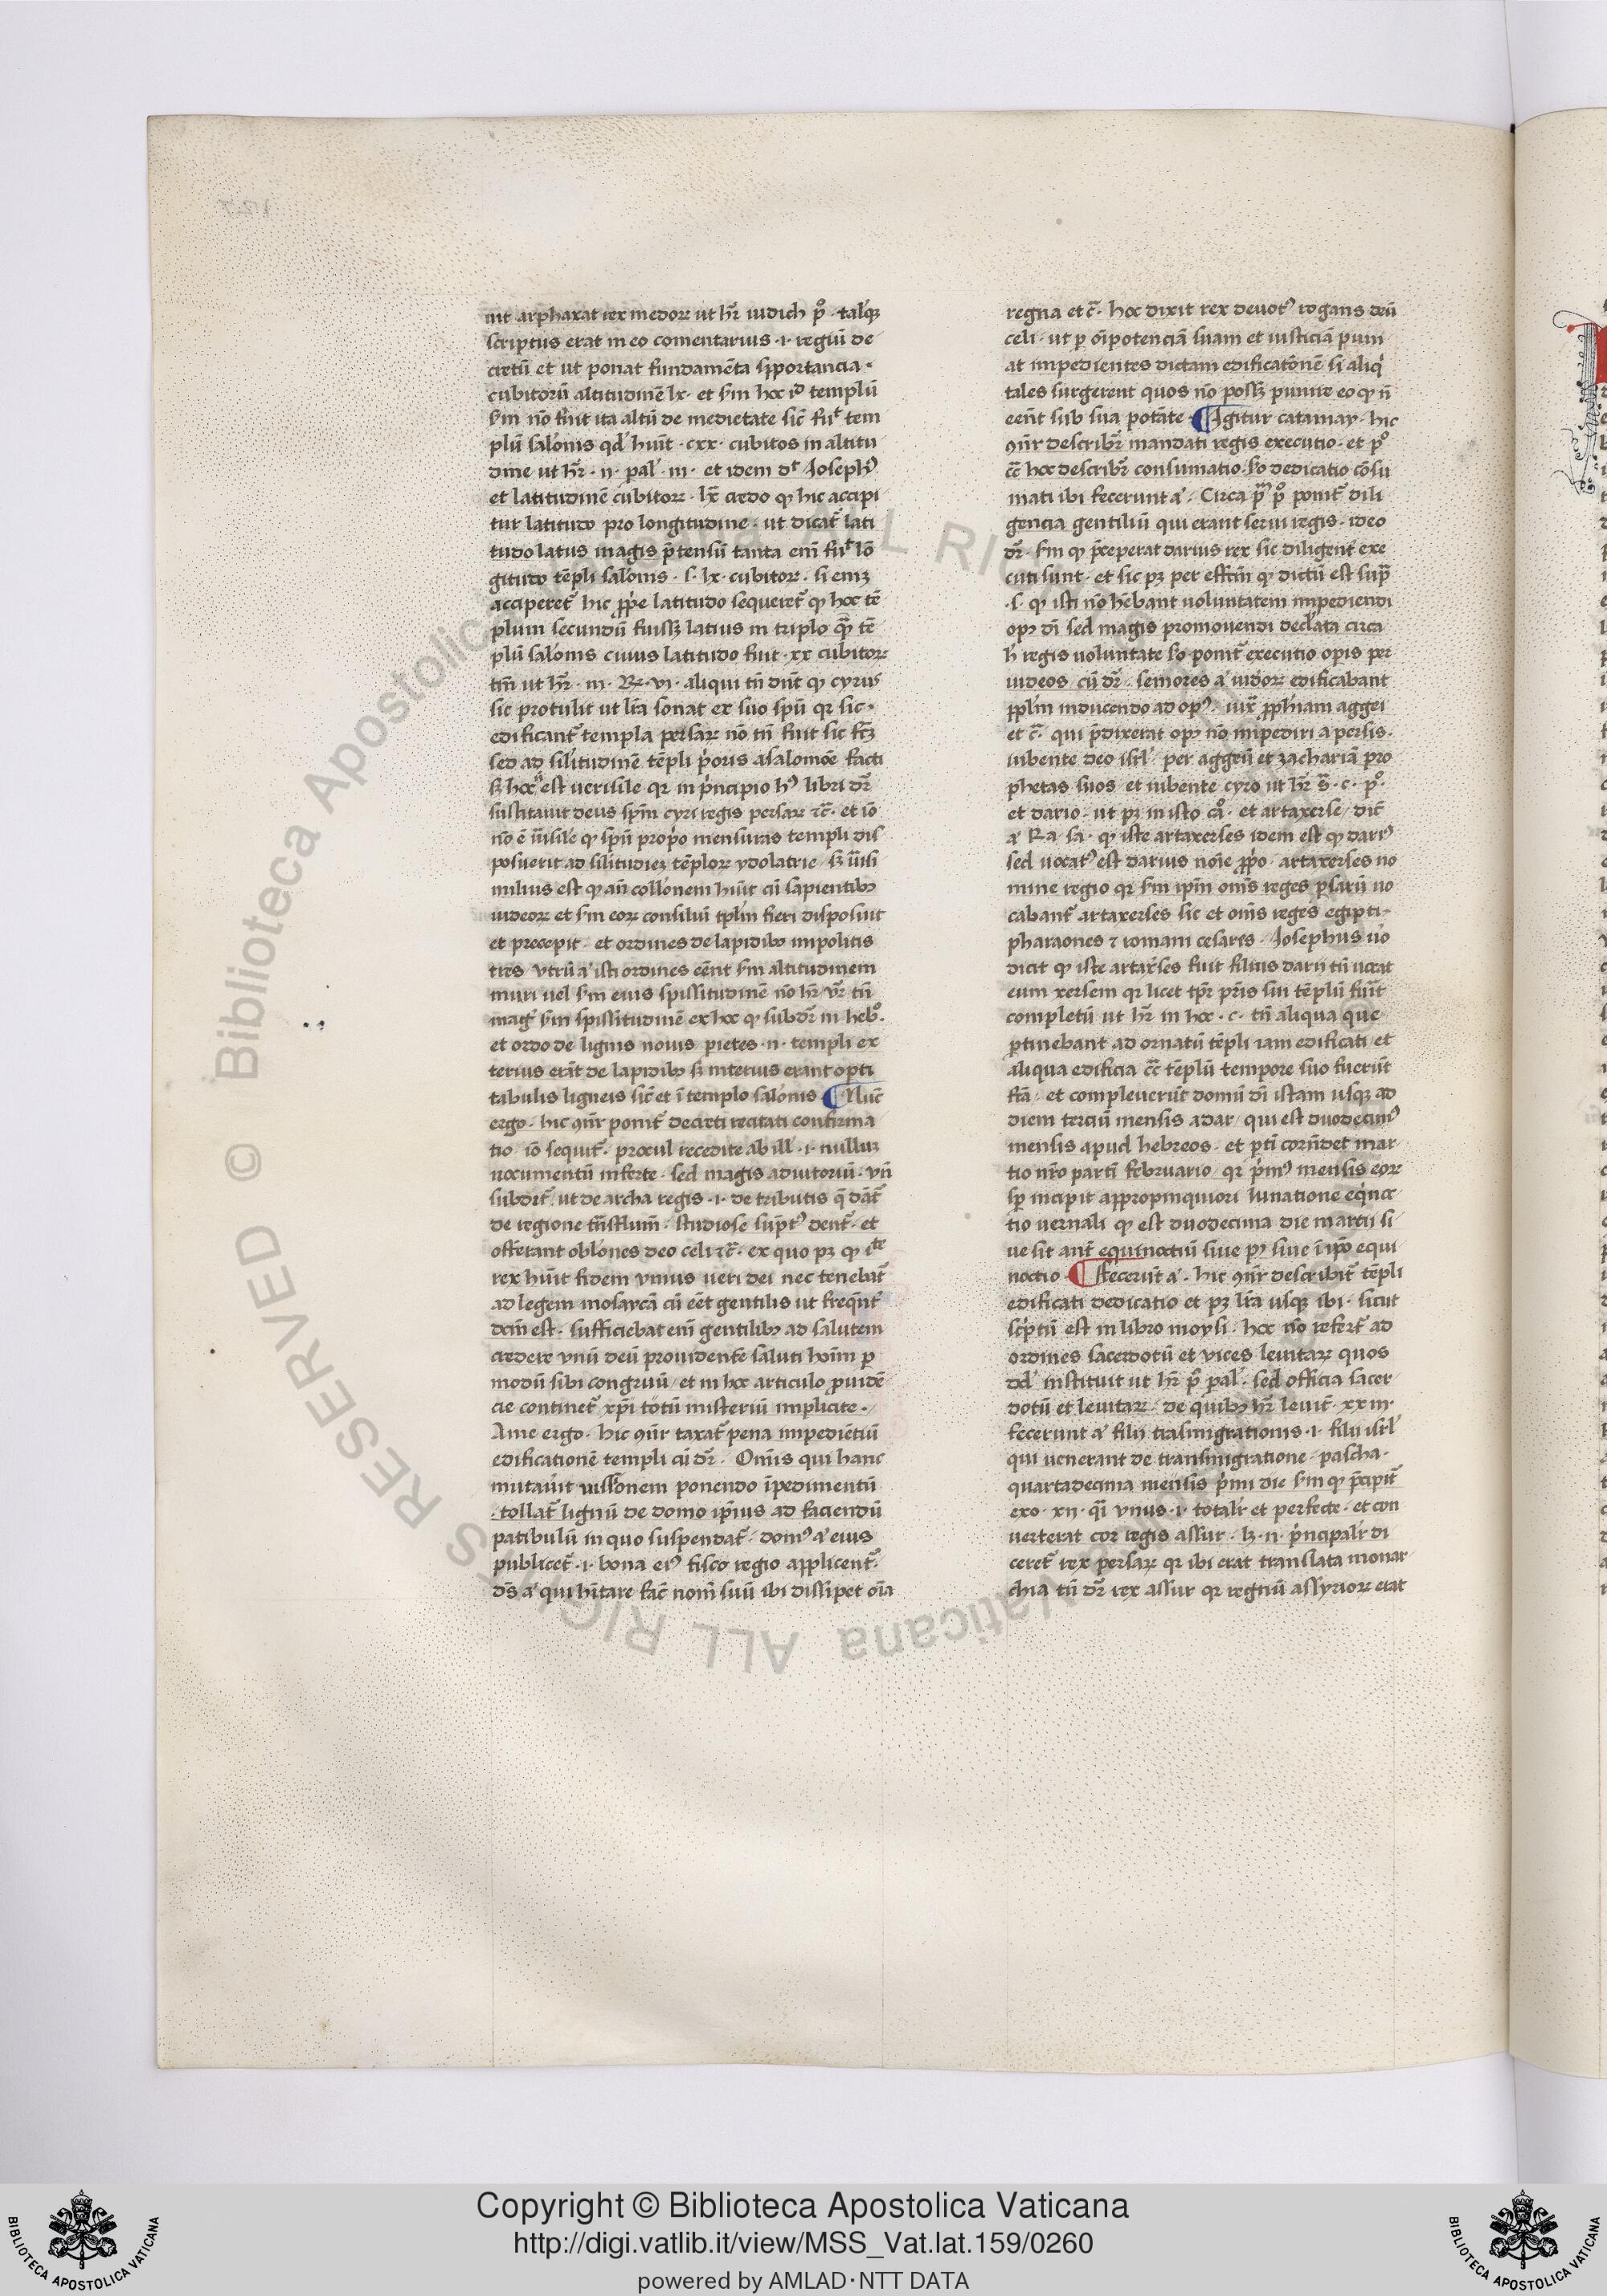 uit arphaxat rex medoꝝ ut hr̄ iudich pͦ · talisqꝫ
scriptus erat in eo comentarius · i · regiū de
cretū et ut ponat fundamēta sp̄portancia ·
cubitorū altitudinē lx · et sm̄ hoc id templū
sm̄ nō fuit ita altū de medietate sic̄ fuit tem
plū salōnis qd̄ huit · cxx · cubitos in altitu
dine ut hr̄ · ii · pal̄ · iii · et idem dt Josephꝰ
et latitudinē cubitoꝝ · lx̄ credo ꝙ hic accipi
tur latitudo pro longitudine · ut dicat̄ lati
tudo latus magis p̄tensū tanta em̄ fuit lō
gitudo tēpli salōnis · s · lx · cubitoꝝ · si eniꝫ
acciperet̄ hic ꝓpe latitudo sequeret̄ ꝙ hoc tē
plum secundū fuissꝫ latius in triplo qͣꝫ tē
plū salōnis cuius latitudo fuit · xx cubitoꝝ
tm̄ ut hr̄ · iii · Rꝝ · vi · aliqui tn̄ dnt̄ ꝙ cyrus
sic protulit ut lr̄a sonat ex suo spū qr sic ·
edificant̄ templa persaꝝ nō tn̄ fuit sic fcm̄
sed ad silitudinē tēpli pͥoris a salomōe facti
sꝫ hoc nō est uerisile qr in pͥncipio hꝰ libri dr̄
suscitauit deus spm̄ cyri regis persaꝝ ⁊c̄ · et iō
nō ē uisile ꝙ spū propͥo mensuras templi dis
posuerit ad silitudiēꝫ tēploꝝ ydolatrie sꝫ uisi
milius est ꝙ an̄ collōnem huit cū sapientibꝫ
iudeoꝝ et sm̄ eoꝝ consiliū tplm̄ fieri disposuit
et precepit · et ordines de lapidibꝫ impolitis
tres vtrū aͣ isti ordines eēnt sm̄ altitudinem
muri uel sm̄ eius spissitudinē nō hr̄ vr̄ tn̄
magͥ sm̄ spissitudinē ex hoc ꝙ subdr̄ in hebͦ ·
et ordo de lignis nouis pietes · n · templi ex
terius erāt de lapidibꝫ sꝫ interius erant opti
tabulis ligneis sic̄ et ī templo salōnis ¶ Nūc
ergo · hic ꝯn̄r ponit̄ decreti recitati confirma
tio · iō sequit̄ · procul recedite ab ill̄ · i · nulluꝫ
nocumentū inferte · sed magis adiutoriū · vn̄
subdit̄ · ut de archa regis · i · de tributis q̄ dāt̄
de regione trn̄sflum̄ · studiose sūptꝰ dent̄ · et
offerant oblōnes deo celi ⁊c̄ · ex quo pꝫ ꝙ iste
rex huit fidem vnius ueri dei nec tenebat̄
ad legem mosaycā cū eēt gentilis ut freqn̄t̄
dcm̄ est · sufficiebat em̄ gentilibꝫ ad salutem
credere vnū deū prouidente saluti hoīm ꝑ
modū sibi congruū / et in hoc articulo ꝓuidē
cie continet̄ xp̄i totū misteriū implicite ·
A me ergo · hic ꝯn̄r taxat̄ pena impediētiū
edificationē templi cū dr̄ · Om̄is qui hanc
mutauit iussionem ponendo īpedimentū
· tollat̄ lignū de domo ip̄ius ad faciendū
patibulū in quo suspendat̄ · domꝰ aͣ eius
publicet̄ · i · bona eiꝰ fisco regio applicent̄ ·
ds̄ aͣ qui hītare fac̄ nom̄ suū ibi dissipet oīa
regna et c̄ · hoc dixit rex deuotꝰ rogans deū
celi · ut ꝑ oīpotenciā suam et iusticiā puni
at impedientes dictam edificatōnē si aliqͥ
tales surgerent quos nō possꝫ punire eo ꝙ nō
eēnt sub sua potate · ¶ Igitur catanay · hic
ꝯn̄r describit̄ mandati regis executio · et pͦ
cc̄ hoc describit̄ consumatio · sͦo dedicatio cōsu
mati ibi fecerunt aͣ · Circa pͫ pͦ ponit̄ dili
gencia gentiliū qui erant serui regis · ideo
dr̄ · sm̄ ꝙ p̄ceperat darius rex sic diligent̄ exe
cuti sunt · et sic pꝫ per effcm̄ ꝙ dictū est supͣ
· s · ꝙ isti nō hēbant uoluntatem impediendi
opꝰ di sed magis promouendi declͣata circa
h̄ regis uoluntate sͦo ponit̄ executio opis per
iudeos cū dr̄ · seniores aͣ iudeoꝝ edificabant
ꝓplm̄ inducendo ad opꝰ · iuxͣ ꝓphiam aggei
et c̄ · qui p̄dixerat opꝰ nō impediri a persis ·
iubente deo isrl̄ per aggeū et zachariā pro
phetas suos et iubente cyro ut hr̄ sͣ · c · pͦ ·
et dario · ut pꝫ in isto cͣo · et artaxerse / dic̄
aͣ Ra · sa · ꝙ iste artaxerses idem est ꝙ dariꝰ
sed uocatꝰ est darius noīe ꝓpͥo · artaxerses no
mine regio qr sm̄ ipm̄ om̄is reges ꝑsarū uo
cabant̄ artaxerses sic et om̄is reges egipti
pharaones ⁊ romani cesares · Josephus uͦo
dicit ꝙ iste artaxerses fuit filius darii tn̄ uocat
eum xersem qr licet tp̄r pr̄is sui tēplū fuit
completū ut hr̄ in hoc · c · tn̄ aliqua que
ꝑtinebant ad ornatū tēpli iam edificati et
aliqua edificia cc̄ tēplū tempore suo fuerūt
fcā · et compleuerūt domū di istam usqꝫ ad
diem terciū mensis adar / qui est duodecimꝰ
mensis apud hebreos · et pti corn̄det mar
tio nr̄o partī februario · qr pͥmꝰ mensis eoꝝ
sp̄ incipit appropinquiori lunatione eqͥnoc
tio uernali ꝙ est duodecima die marcii si
ue sit an̄t equinoctiū siue pꝰ siue ī ipō equi
noctio · ¶ Fecerūt aͣ · hic ꝯn̄r describit̄ tēpli
edificati dedicatio et pꝫ lr̄a usqꝫ ibi · sicut
scͥptū est in libro moysi · hoc nō refert̄ ad
ordines sacerdotū et vices leuitaꝝ quos
dd̄ instituit ut hr̄ pͥ pal̄ · sed officia sacer
dotū et leuitaꝝ · de quibꝫ hr̄ leuit̄ · xxiii ·
fecerunt aͣ filii trāsmigrationis · i · filii isrl̄
qui uenerant de transmigratione · pascha ·
quartadecima mensis pͥmi die sm̄ ꝙ p̄cipit̄
exo · xii · qͣi vnus · i · totalit̄ et perfecte · et con
uerterat cor regis assur · lꝫ · n · pͥncipalit̄ di
ceret̄ rex persaꝝ qr ibi erat translata monar
chia tn̄ dr̄ rex assur qr regnū assyrioꝝ erat
Copyright © Biblioteca Apostolica Vaticana
http://digi.vatlib.it/view/MSS_Vat.lat.159/0260
powered by AMLAD·NTT DATA